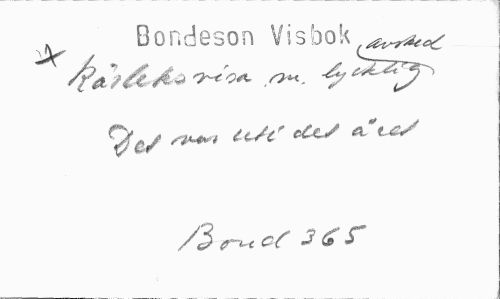 Bondeson Visbok
x Kärleksvisa m. lycklig avsked
Det var uti det året
Bond 365